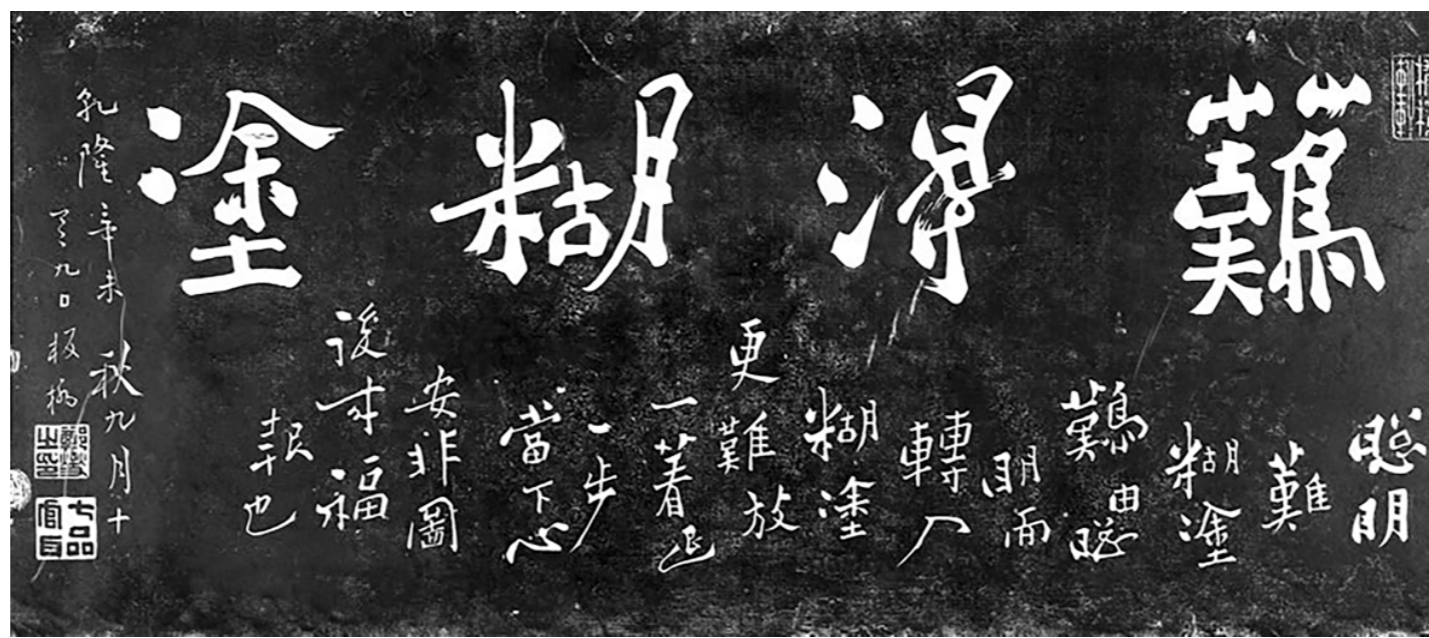 難得糊塗
聰明
難
糊塗
難由聰
明而
轉入
糊塗
更難放
一着退
一步
當下心
安非圖
後來福
報也
乾隆辛未秋九月十
有九日板橋
鄭燮之印
七品官耳